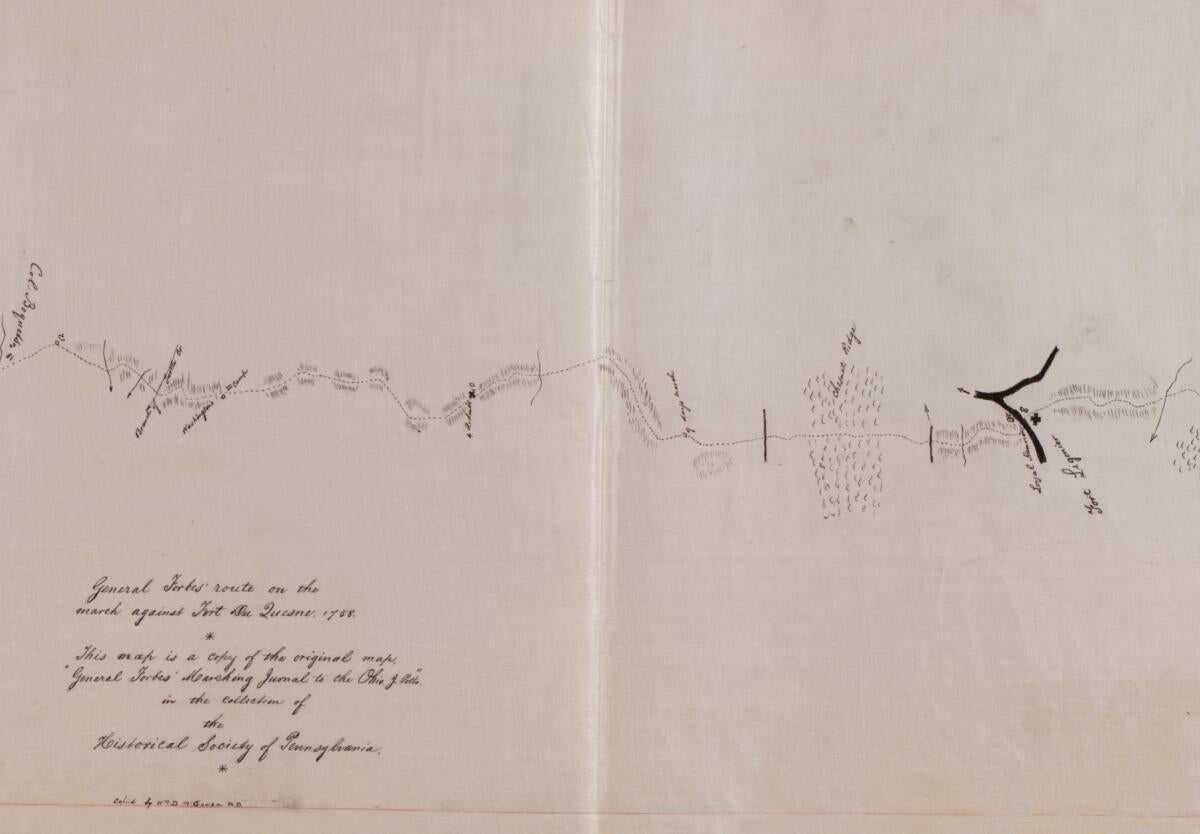 Col. Boquette's
12
Washington's
Camp
9 days march
Chesnut Ridge
Loyal
Fort Ligonier
General Forbes' route on the
march against Fort Du Quesne. 1758.
*
This map is a copy of the original map,
"General Forbes' Marching Jurnal to the Ohio J. Potts"
in the collection of
the
Historical Society of Pennsylvania.
*
by Wm D McGowan M.D.